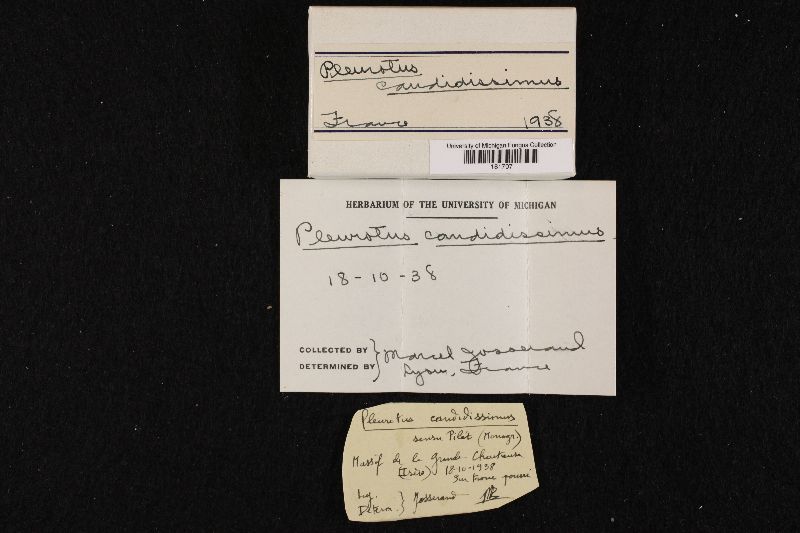 Pleurotus
candidissimus
France 1938
University of Michigan Fungus Collection
HERBARIUM OF THE UNIVERSITY OF MICHIGAN
Pleurotus candidissimus
18-10-38
COLLECTED BY } Marcel Josserand
DETERMINED BY Lyon, France
Pleurotus candidissimus
sensu Pilát (Monogr.)
Massif de la Grande Chartreuse
(Isère) 18-10-1938
Sur tronc pourri
Leg. } Josserand
Determ.